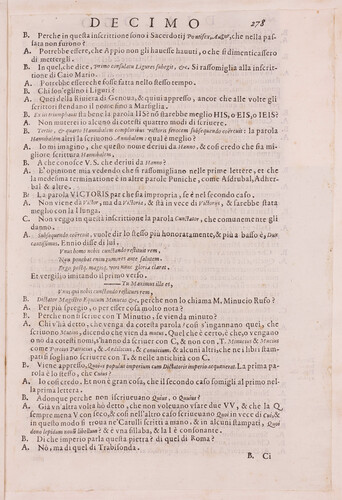 DECIMO 278
B. Perche in questa inscrittione sono i Sacerdotij Pontifex, Augur, che nella pas-
sata non furono?
A. Potrebbe essere, che Appio non gli hauesse hauuti, o che si dimenticassero
di mettergli.
B. In quel, che dice, Primo consulatu Ligures subegit, &c. Si rassomiglia alla inscrit-
tione di Caio Mario.
A. Potrebbe essere che fosse fatta nello stesso tempo.
B. Chi son'eglino i Liguri?
A. Quei della Riuiera di Genoua, & quiui appresso, ancor che alle volte gli
scrittori stendano il nome fino a Marsiglia.
B. Ex iis triumphauit sta bene la parola IIS? nò starebbe meglio HIS, o EIS, o IEIS?
A. Non muterei io alcuno di cotesti quattro modi di scriuere.
B. Tertio, & quarto Hannibalem compluribus victoriis ferocem subsequendo coërcuit: la parola
Hannibalem altri la scriuono Annibalem: qual è meglio?
A. Io mi imagino, che questo nome deriui da Hanno, & così credo che sia mi-
gliore scrittura Hannibalem.
B. A che conosce V. S. che deriui da Hanno?
A. E' opinione mia vedendo che si rassomigliano nelle prime lettere, et che
la medesima terminatione è in altre parole Puniche, come Asdrubal, Adher-
bal & altre.
B. La parola VICTORIS par che sia impropria, se è nel secondo caso.
A. Non viene da Victor, ma da Victoria, & stà in vece di Victoriis, & sarebbe stata
meglio con la I lunga.
C. Non veggo in questa inscrittione la parola Cunctator, che comunemente gli
danno.
A. Subsequendo coërcuit, vuole dir lo stesso più honoratamente, & più a basso è, Dux
cautissimus. Ennio disse di lui.
Vnus homo nobis cunctando restituit rem,
Non ponebat enim rumores ante salutem.
Ergo postq; magisq; viri nunc gloria claret.
Et vergilio imitando il primo verso.
—— Tu Maximus ille es,
Vnus qui nobis cunctando restituis rem,
B. Dictator Magistro Equitum Minucio &c, perche non lo chiama M. Minucio Rufo?
A. Per più spregio, o per esser cosa molto nota?
B. Perche non si scriue con T Minutio, se vien da minuto?
A. Chi v'hà detto, che venga da cotesta parola? così s'ingannano quei, che
scriuono Mutius, dicendo che vien da mutus. Quel che è certo, è che, o vengano
o no da cotesti nomi, s'hanno da scriuer con C, & non con T. Minucius & Mucius
come Porcius Patricius, & Aedilicius, & Caniucium, & alcuni altri, che ne i libri stam-
pati si sogliono scriuere con T, & nelle antichità con C.
B. Viene appresso, Quoius popularis imperium cum Dictatoris imperio aequauerat. La prima pa-
rola è lo stesso, che Cuius?
A. Io così credo. Et non è gran cosa, che il secondo caso somigli al primo nel-
la prima lettera.
B. Adonque perche non iscriueuano Quius, o Quoius?
A. Già vn altra volta hò detto, che non voleuano vsare due VV, & che la Q,
sempre mena V con seco, & così nell'altro caso scriueuano Quoi in vece di Cui, & in
questo modo si troua ne' Catulli scritti a mano, & in alcuni stampati, Quoi
dono lepidum nouum libellum? & è vna sillaba, & la I è consonante.
B. Di che imperio parla questa pietra? di quel di Roma?
A. Nò, ma di quel di Trabisonda.
B. Ci